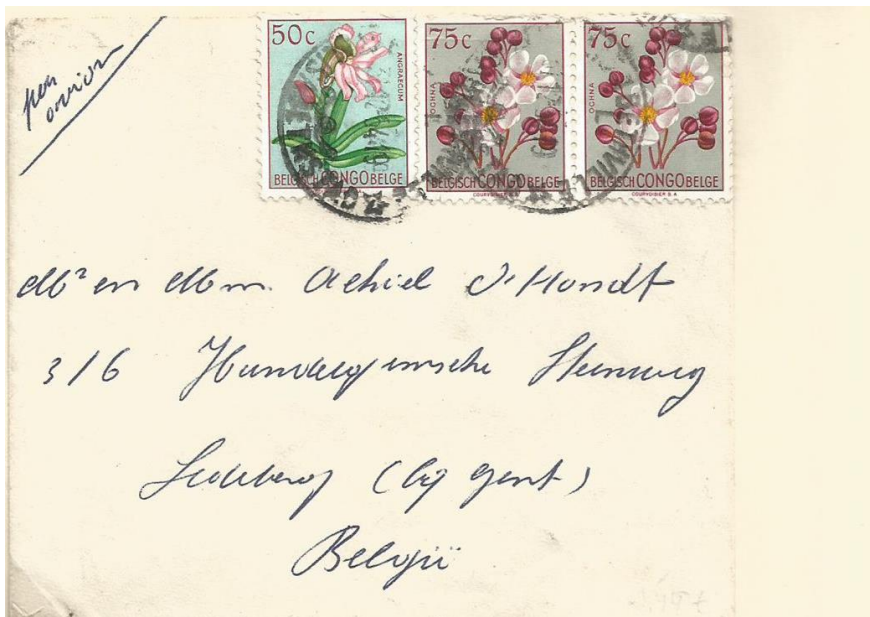 per
avion
50c
ANGRAECUM
BELGISCH CONGO BELGE
75c
OCHNA
BELGISCH CONGO BELGE
COURVOISIER S.A.
75c
OCHNA
BELGISCH CONGO BELGE
COURVOISIER S.A.
Mr en Mm. Achiel D'Hondt
316 Hundelgemsche Steenweg
Ledeberg (bij Gent)
België